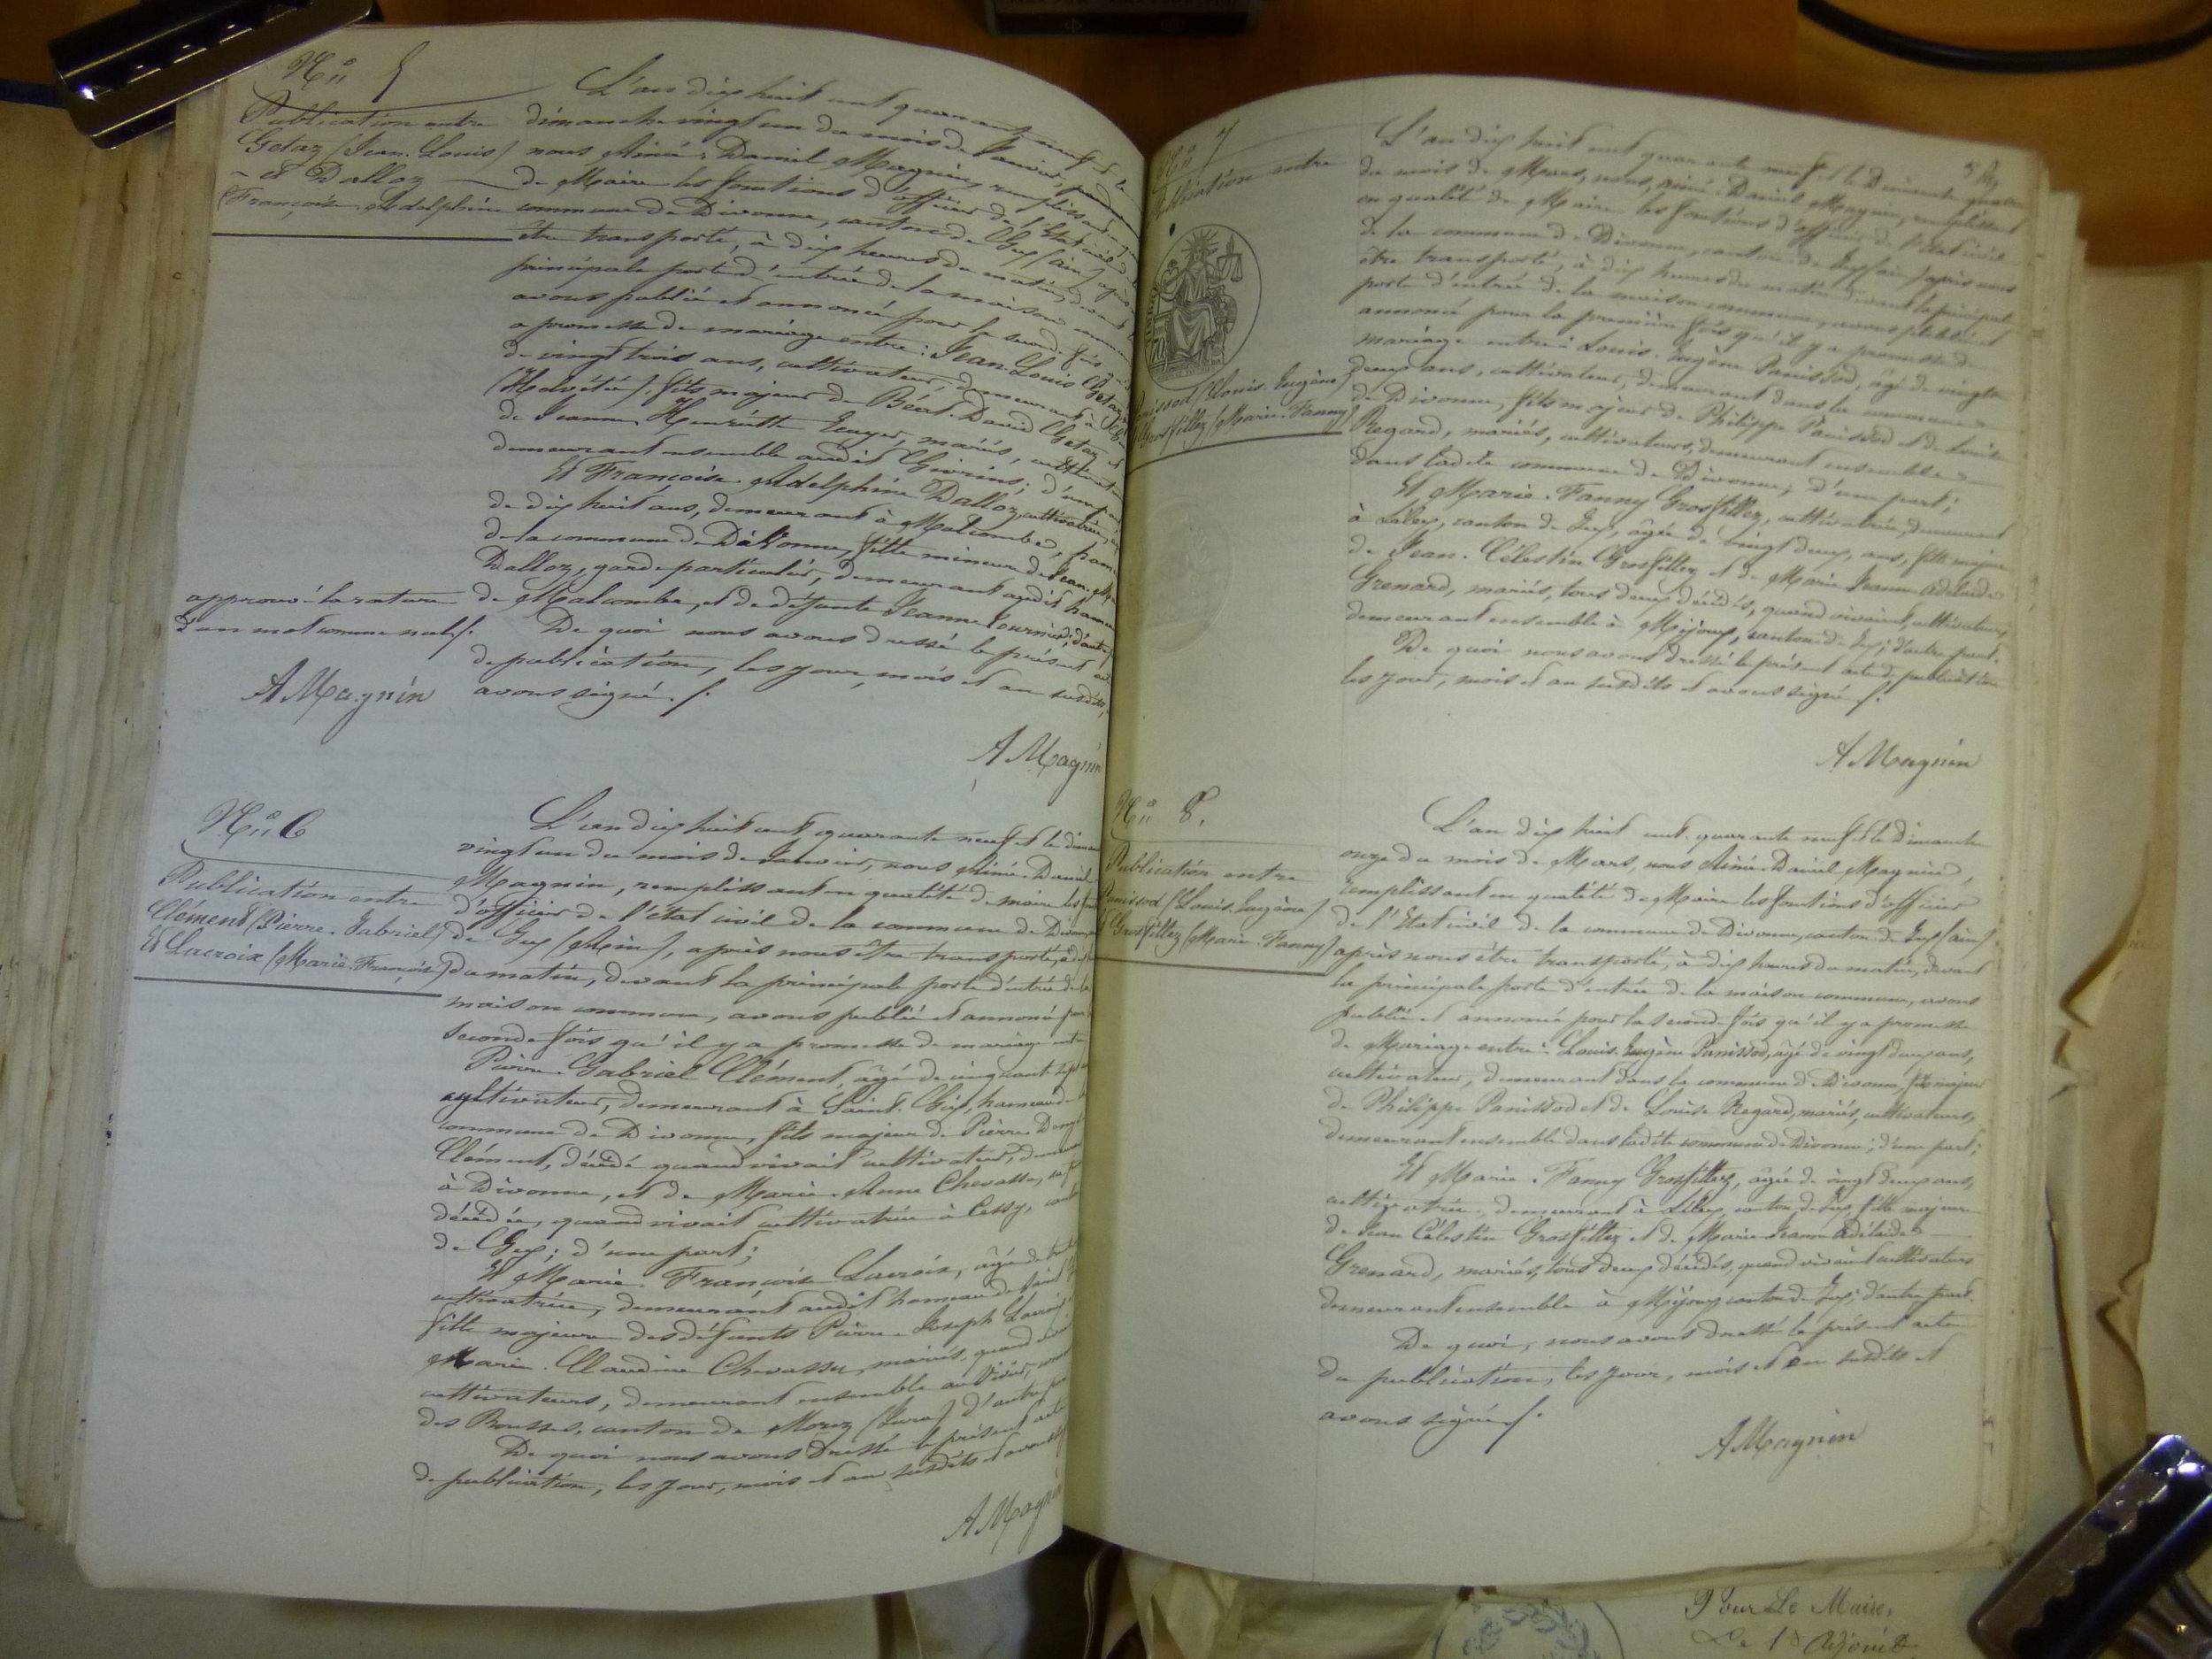 N° 5
Publication entre
Getaz (Jean-Louis)
et Dalloz
(Françoise Adelphine
L'an dix huit cent quarante neuf et le
dimanche vingt un du mois de Janvier,
nous Aimé-Daniel Magnin, remplissant en
de Maire les fonctions d'officier de l'Etat civil de
commune de Divonne, canton de Gex (ain) après
être transporté, à dix heures du matin, devant
principale porte d'entrée de la maison commune
avons publié et annoncé pour la seconde fois qu'il
a promesse de mariage entre : Jean-Louis Getaz
de vingt trois ans, cultivateur, demeurant à
(Helvétie), fils majeur de Béat-David Getaz et
de Jeanne Henriette mariés, cultivateurs
demeurant ensemble audit Givrins ; d'une part
Et Françoise Adelphine Dalloz, cultivatrice,
de dix huit ans, demeurant à Malcombe, hameau
de la commune de Divonne, fille mineure de Jean
Dalloz, garde particulier, demeurant audit hameau
de Malcombe, et de défunte Jeanne Tournier ; d'autre
De quoi nous avons dressé le présent acte
de publication, les jour, mois et an susdits,
avons signé./.
approuvé la rature
d'un mot comme nul./.
A Magnin
A Magnin
N° 6
Publication entre
Clément (Pierre-Gabriel)
Et Lacroix (Marie-Françoise)
L'an dix huit cent quarante neuf et le dimanche
vingt un du mois de Janvier, nous Aimé-Daniel
Magnin, remplissant en qualité de maire les fonctions
d'officier de l'état civil de la commune de Divonne
de Gex (Ain), après nous être transporté, à dix
du matin, devant la principale porte d'entrée de la
maison commune, avons publié et annoncé pour
seconde fois qu'il y a promesse de mariage entre
Pierre-Gabriel Clément, âgé de cinquante sept
cultivateur, demeurant à Saint-Gix, hameau de
commune de Divonne, fils majeur de Pierre
Clément, décédé quand vivait cultivateur, demeurant
à Divonne, et de Marie-Anne Chevassu,
décédée, quand vivait cultivatrice à Cessy, canton
de Gex ; d'une part ;
Et Marie-Françoise Lacroix, âgée de
cultivatrice, demeurant audit hameau de Saint
fille majeure des défunts Pierre-Joseph Lacroix
Marie-Claudine Chevassu, mariés, quand
cultivateurs, demeurant ensemble au
des Rousses, canton de Morez (Jura) d'autre part
De quoi nous avons dressé le présent acte
de publication, les jour, mois et an susdits et avons
A Magnin
N° 7
Publication entre
Panissod (Louis-Eugène)
Grosfillez (Marie-Fanny)
L'an dix huit cent quarante neuf et le Dimanche quatre
du mois de Mars, nous, aimé-Daniel Magnin, remplissant
en qualité de Maire les fonctions d'officier de l'Etat civil
de la commune de Divonne, canton de Gex (ain) après nous
être transporté, à dix heures du matin devant la principale
porte d'entrée de la maison commune, avons publié et
annoncé pour la première fois qu'il y a promesse de
mariage entre : Louis-Eugène Panissod, âgé de vingt
deux ans, cultivateur, demeurant dans la commune
de Divonne, fils majeur de Philippe Panissod et de Louise
Regard, mariés, cultivateurs, demeurant ensemble
dans ladite commune de Divonne ; d'une part ;
Et Marie-Fanny Grosfillez, cultivatrice, demeurant
à Lélex, canton de Gex, âgée de vingt deux ans, fille majeure
de Jean-Célestin Grosfillez et de Marie Jeanne Adélaïde
Grenard, mariés, tous deux décédés, quand vivaient, cultivateurs
demeurant ensemble à Mijoux, canton de Gex ; d'autre part.
De quoi nous avons dressé le présent acte de publication
les jour, mois et an susdits et avons signé./.
A Magnin
N° 8.
Publication entre
Panissod (Louis-Eugène)
et Grosfillez (Marie-Fanny)
L'an dix huit cent quarante neuf et le Dimanche
onze du mois de Mars, nous Aimé-Daniel Magnin,
remplissant en qualité de Maire les fonctions d'officier
de l'Etat civil de la commune de Divonne, canton de Gex (ain)
après nous être transporté, à dix heures du matin, devant
la principale porte d'entrée de la maison commune, avons
publié et annoncé pour la seconde fois qu'il y a promesse
de Mariage entre : Louis-Eugène Panissod, âgé de vingt deux ans,
cultivateur, demeurant dans la commune de Divonne, fils majeur
de Philippe Panissod et de Louise Regard, mariés, cultivateurs,
demeurant ensemble dans ladite commune de Divonne ; d'une part ;
Et Marie-Fanny Grosfillez, âgée de vingt deux ans,
cultivatrice, demeurant à Lélex, canton de Gex, fille majeure
de Jean Célestin Grosfillez et de Marie Jeanne Adélaïde
Grenard, mariés, tous deux décédés, quand vivaient cultivateurs
demeurant ensemble à Mijoux canton de Gex ; d'autre part.
De quoi, nous avons dressé le présent acte
de publication, les jour, mois et an susdits et
avons signé./.
A Magnin
Pour Le Maire,
Le 1er Adjoint